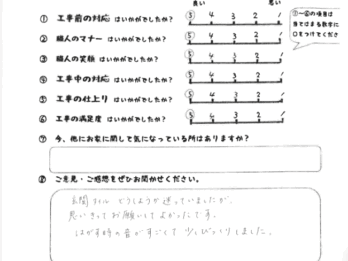 良い 悪い
① 工事前の対応 はいかがでしたか? ⑤ 4 3 2 1
② 職人のマナー はいかがでしたか? ⑤ 4 3 2 1
③ 職人の笑顔 はいかがでしたか? ⑤ 4 3 2 1
④ 工事中の対応 はいかがでしたか? ⑤ 4 3 2 1
⑤ 工事の仕上り はいかがでしたか? ⑤ 4 3 2 1
⑥ 工事の満足度 はいかがでしたか? ⑤ 4 3 2 1
①~⑥の項目は
当てはまる数字に
○をつけてくださ
⑦ 今、他にお家に関して気になっている所はありますか?
⑧ ご意見・ご感想をぜひお聞かせください。
玄関タイル どうしようか迷っていましたが、
思いきってお願いしてよかったです。
はがす時の音がすごくて 少しびっくりしました。